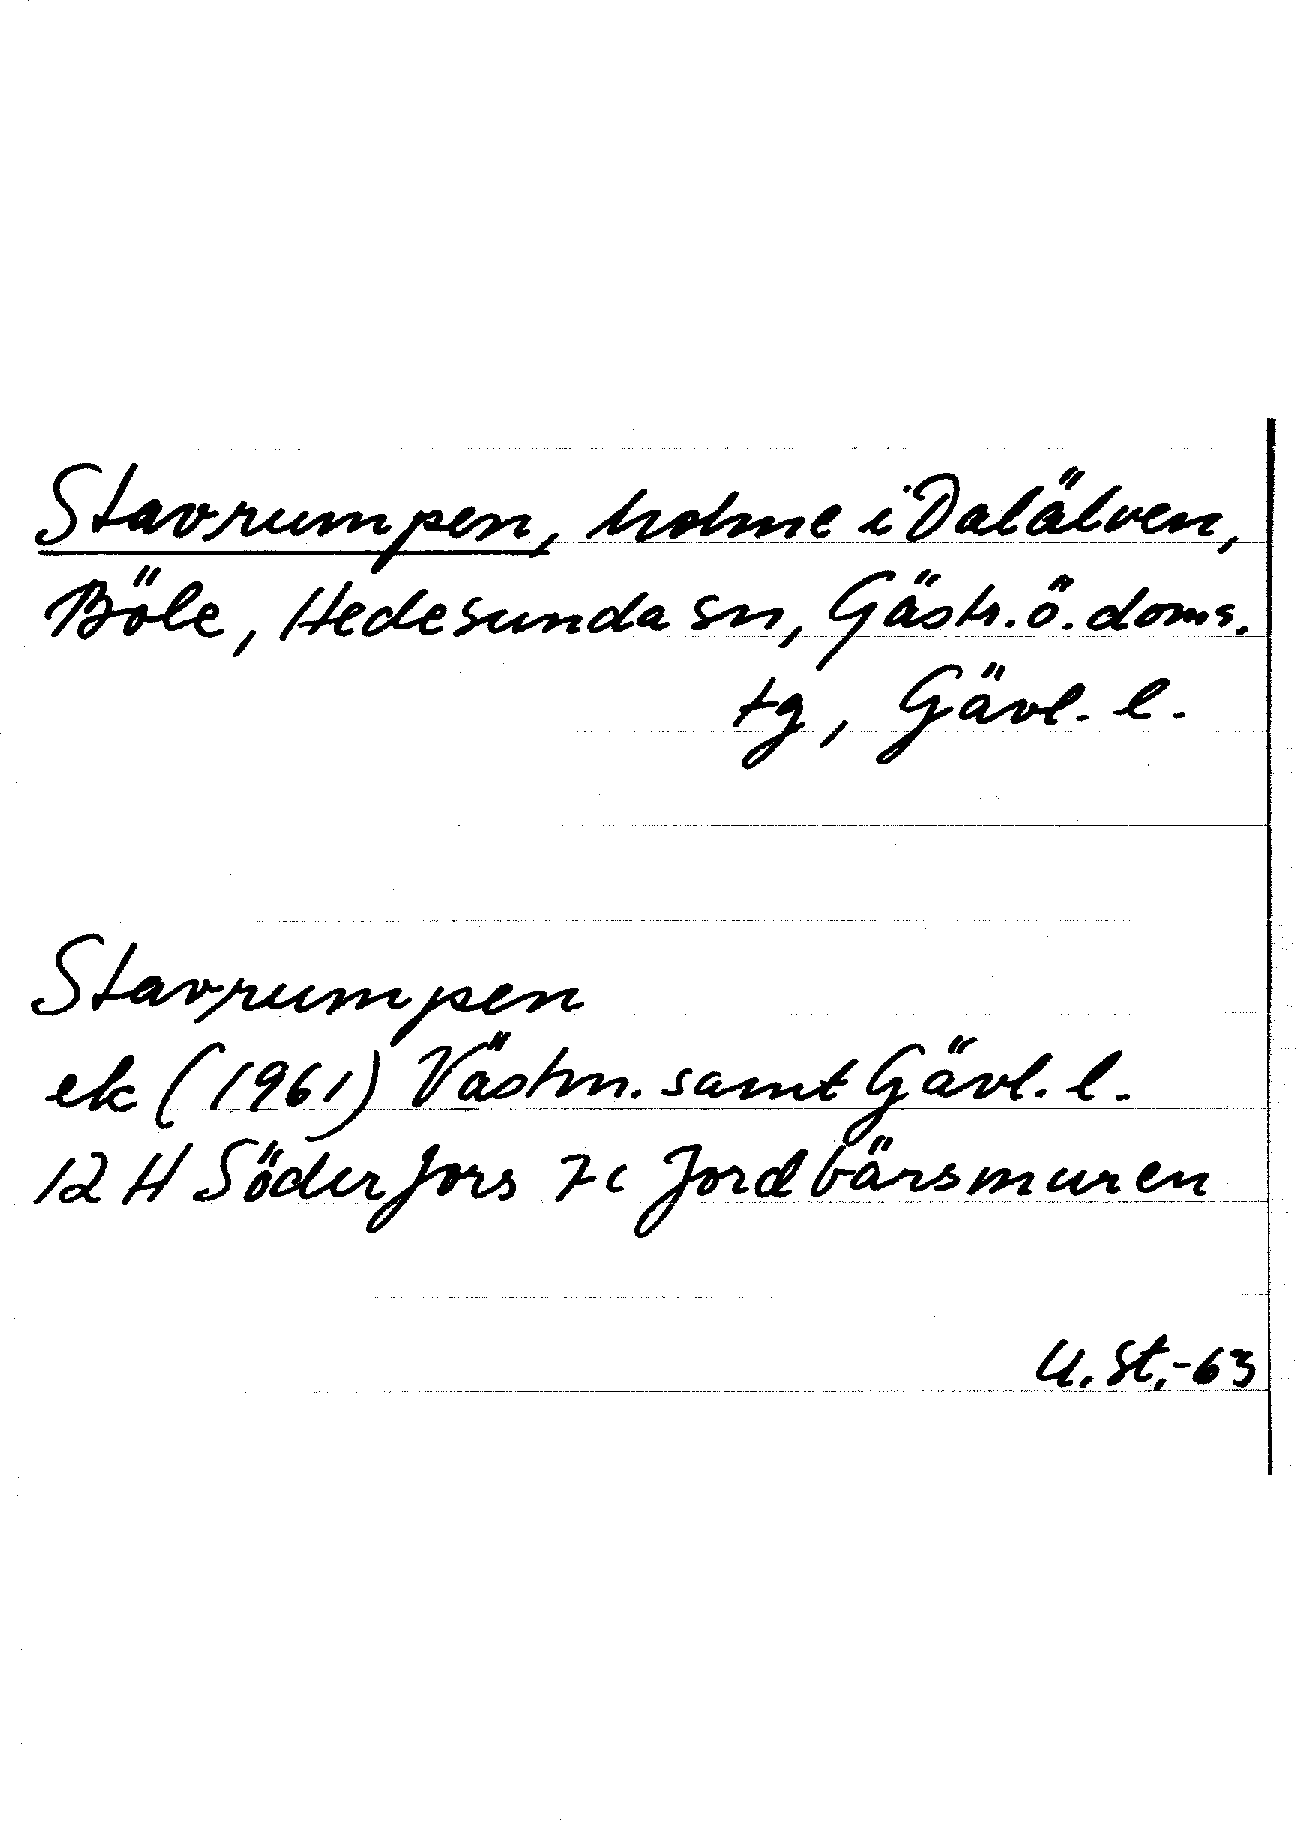 Stavrumpen, holme i Dalälven,
Böle, Hedesunda sn, Gästr. ö. doms.
tg, Gävl. l.
Stavrumpen
ek (1961) Västm. samt Gävl. l.
12 H Söderfors 7c Jordbärsmuren
U. St.-63